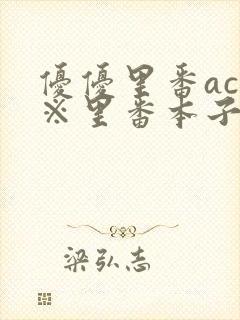 優優里番ac
※里番本子
梁弘志